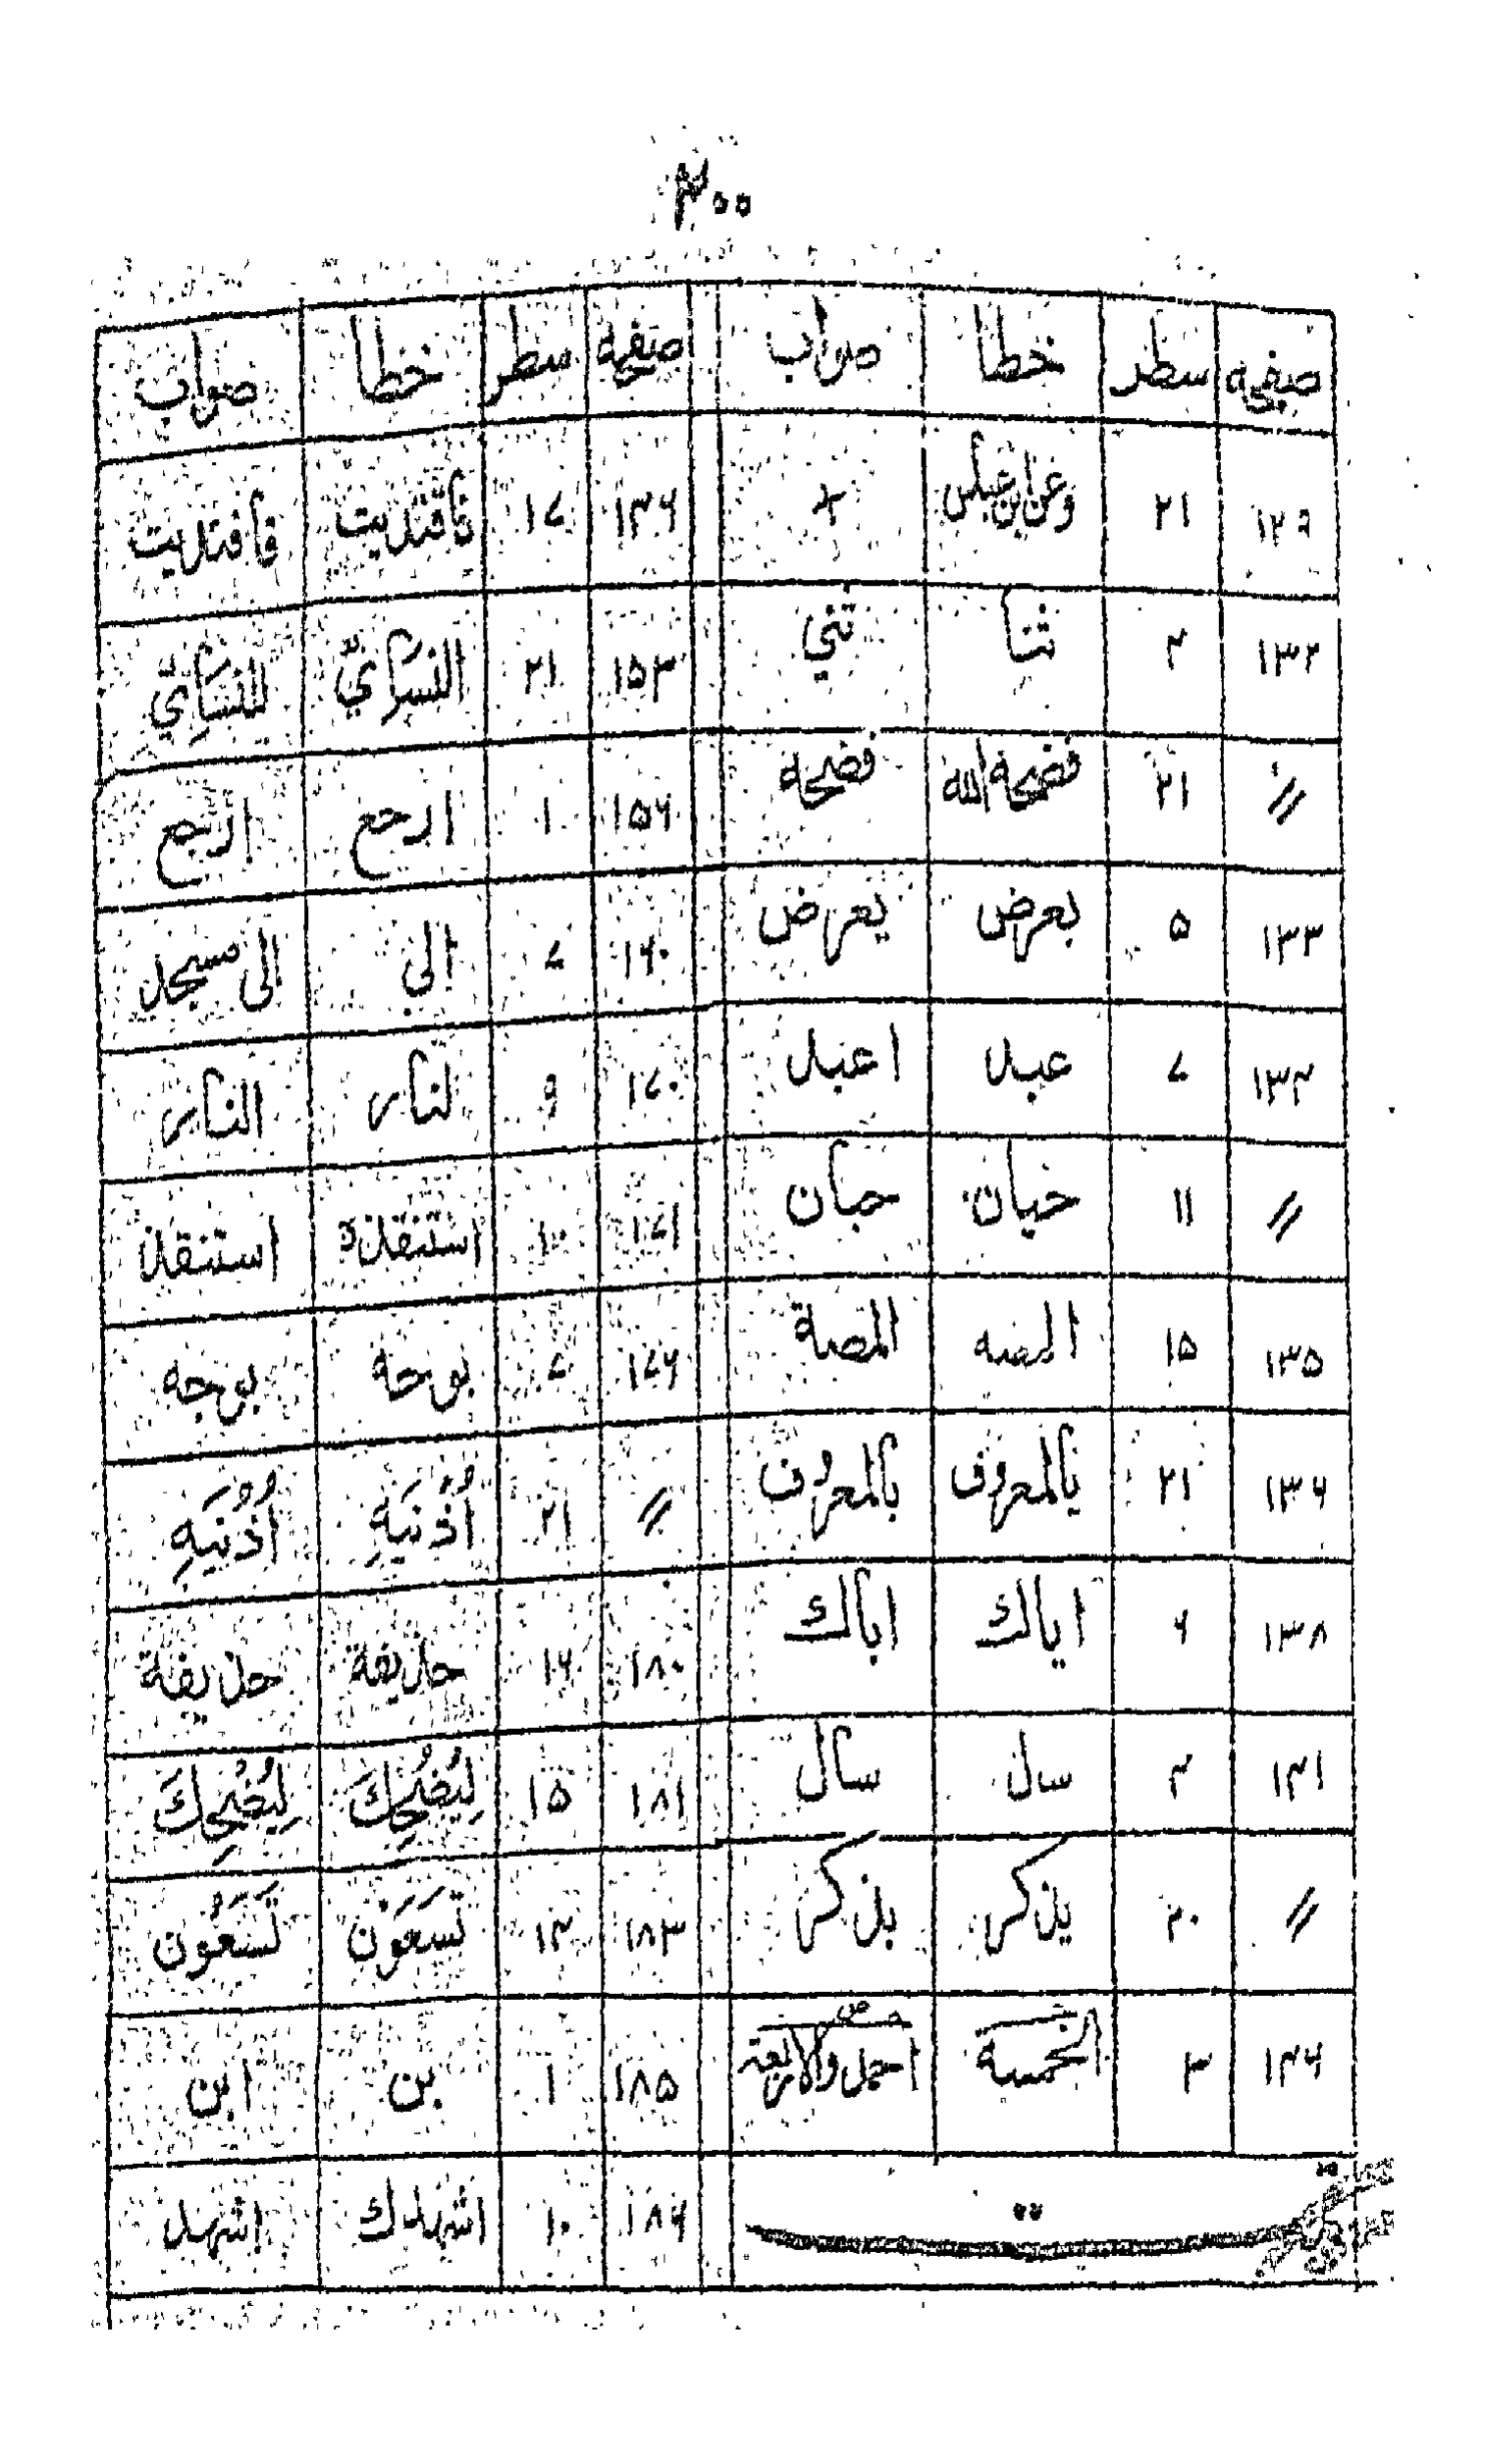 ۲۰۰
صفحه سطر خطا صواب صفحه سطر خطا صواب
۱۲۹ ۲۱ وعن ابن عباس × ۱۳۶ ۱۷ فأقتديت فأفتديت
۱۳۲ ۴ ثنا ثني ۱۵۳ ۲۱ النسائيّ للنسائيّ
〃 ۲۱ فضحة الله فضحه ۱۵۶ ۱ ارجع اربع
۱۳۳ ۵ بعرض يعرض ۱۶۰ ۷ الي الى مسجد
۱۳۴ ۷ عبد اعبد ۱۷۰ ۹ لنار النار
〃 ۱۱ حيان حبان ۱۷۱ ۱۰ استنقذه استنقذ
۱۳۵ ۱۵ المصه المصة ۱۷۶ ۷ بوحه بوجه
۱۳۶ ۲۱ يالمعروف بالمعروف 〃 ۲۱ أُذُنَيَهِ أُذُنَيهِ
۱۳۸ ۶ اياك اباك ۱۸۰ ۱۶ حذيفة حذيفة
۱۴۱ ۴ سال سأل ۱۸۱ ۱۵ لِيُضْحُكَ لِيُضْحِكَ
〃 ۲۰ يذكر بذكر ۱۸۳ ۱۴ تسَعَوْن تَسْعَوُن
۱۴۶ ۳ الخمسة احمد والاربعة ۱۸۵ ۱ بن ابن
۱۸۶ ۱۰ اشهدك اشهد